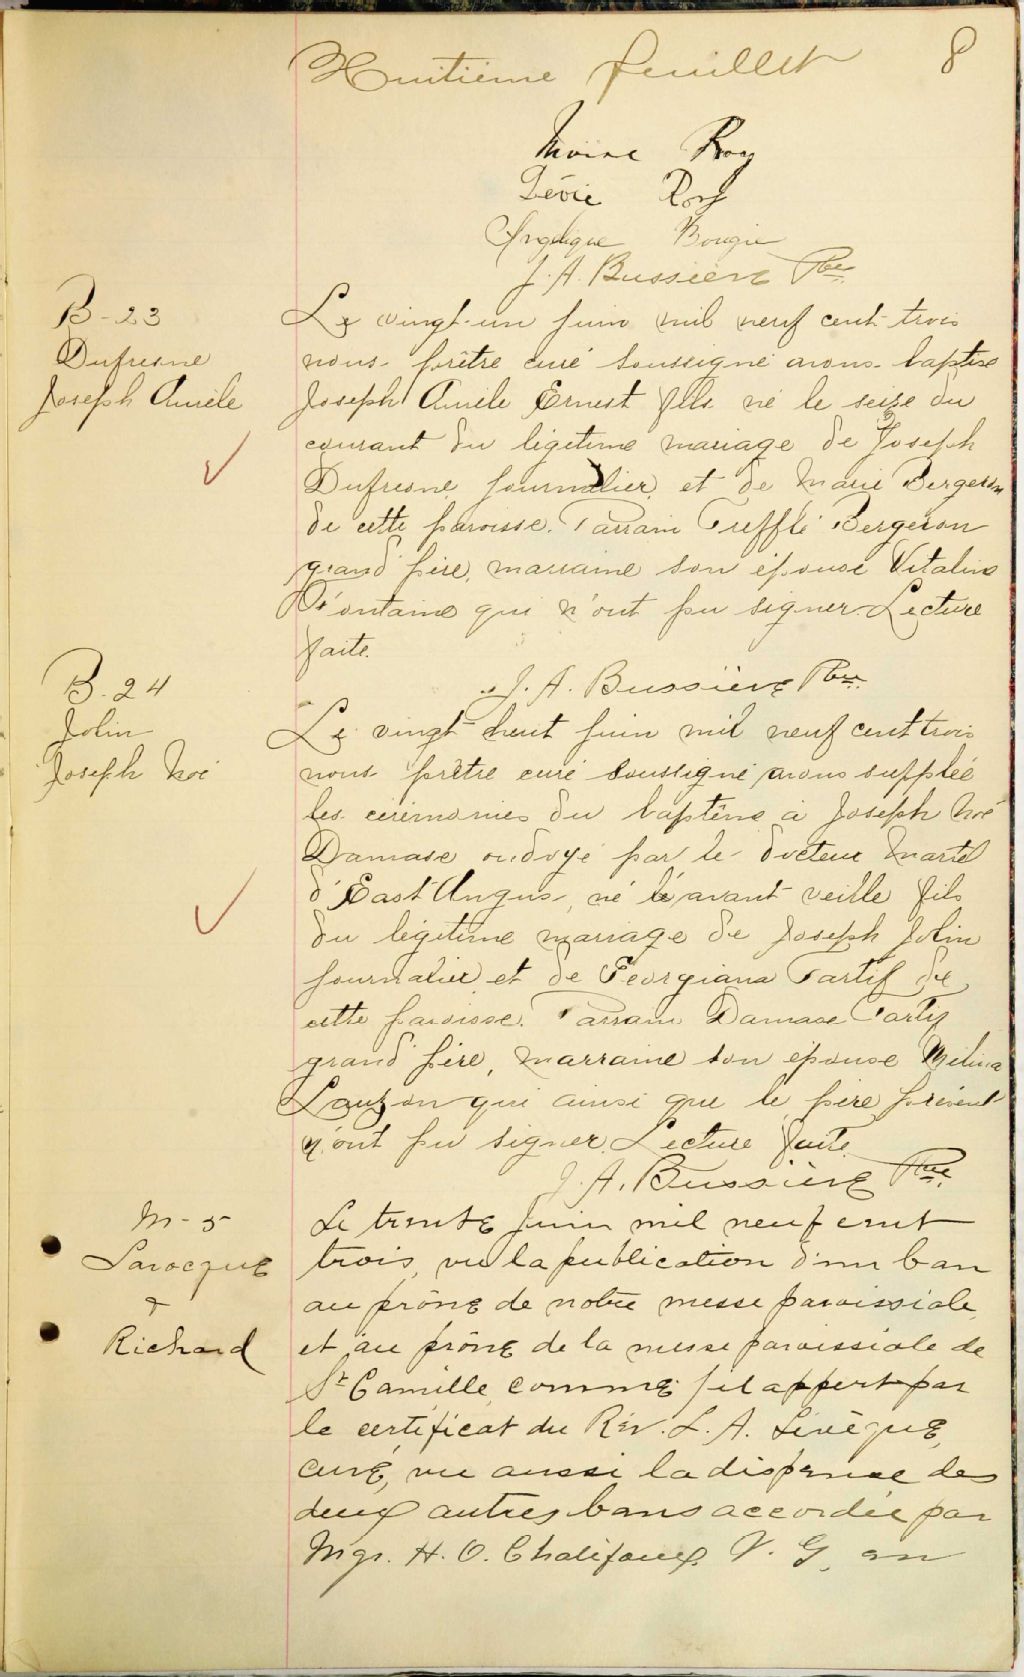 Huitième feuillet 8
Moise Roy
Dévie Roy
Angélique Bougie
J. A. Bussière Ptre
B-23
Dufresne
Joseph Aurèle
Le vingt-un juin mil neuf cent-trois
nous prêtre curé soussigné avons baptisé
Joseph Aurèle Ernest fils né le seize du
courant du légitime mariage de Joseph
Dufresne journalier et de Marie Bergeron
de cette paroisse. Parrain Trefflé Bergeron
grand'père, marraine son épouse Vitaline
Fontaine qui n'ont pu signer. Lecture
faite.
J. A. Bussière Ptre
B-24
Jolin
Joseph Noé
Le vingt-huit juin mil neuf cent trois
nous prêtre curé soussigné avons supplée
les cérémonies du baptême à Joseph Noé
Damase ondoyé par le docteur Martel
d'East Angus, né l'avant veille fils
du légitime mariage de Joseph Jolin
journalier et de Georgiana Tartif de
cette paroisse. Parrain Damase Tartif
grand'père, marraine son épouse Mélina
Lauzon qui ainsi que le père présent
n'ont pu signer. Lecture faite.
J. A. Bussière Ptre
M-5
Larocque
&
Richard
Le trente juin mil neuf cent
trois, vu la publication d'un ban
au prône de notre messe paroissiale,
et au prône de la messe paroissiale de
St Camille, comme il appert par
le certificat du Rév. L. A. Lévèque,
curé, vu aussi la dispense des
deux autres bans accordée par
Mgr. H. O. Chalifoux V. G, en